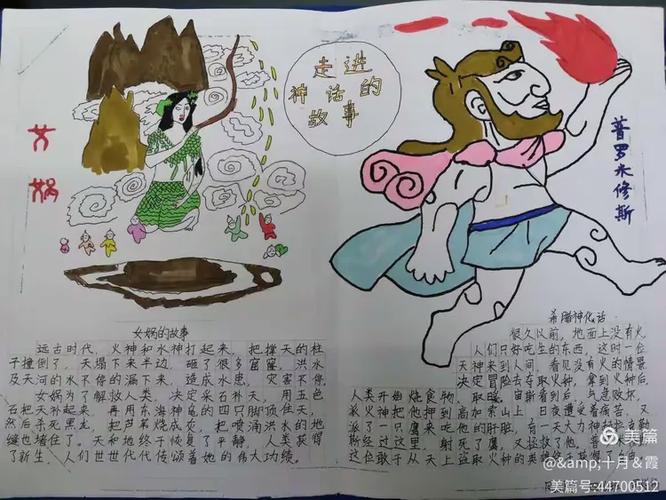 走进
神话的
故事
女娲
普罗米修斯
女娲的故事
远古时代，火神和水神打起来，把撑天的柱
子撞倒了，天塌下来半边，砸了很多窟窿，洪水
及天河的水不停的漏下来，造成水患，灾害不停。
女娲为了解救人类，决定采石补天，用五色
石把天补起来，再用东海神龟的四只脚顶住天，
然后杀死黑龙，把芦苇烧成灰，把喷涌洪水的地
缝也堵住了。天和地终于恢复了平静，人类获得
了新生，人们世世代代传颂着她的伟大功绩。
希腊神化话
很久以前，地面上没有火，
人们只好吃生的东西，这时一位
天神来到人间，看见没有火的情景
决定冒险去天取火种，拿到火种后，
人类开始烧食物，取暖，宙斯看到后，气急败坏，
派火神把他押到高加索山上，日夜遭受着痛苦，又
派了一只鹰来吃他的肝脏，有一天大力神
斯经过这里，射死了鹰，又拯救了他，
这位敢于从天上盗取火种的英雄
美篇
@&amp;十月&霞
美篇号:44700512